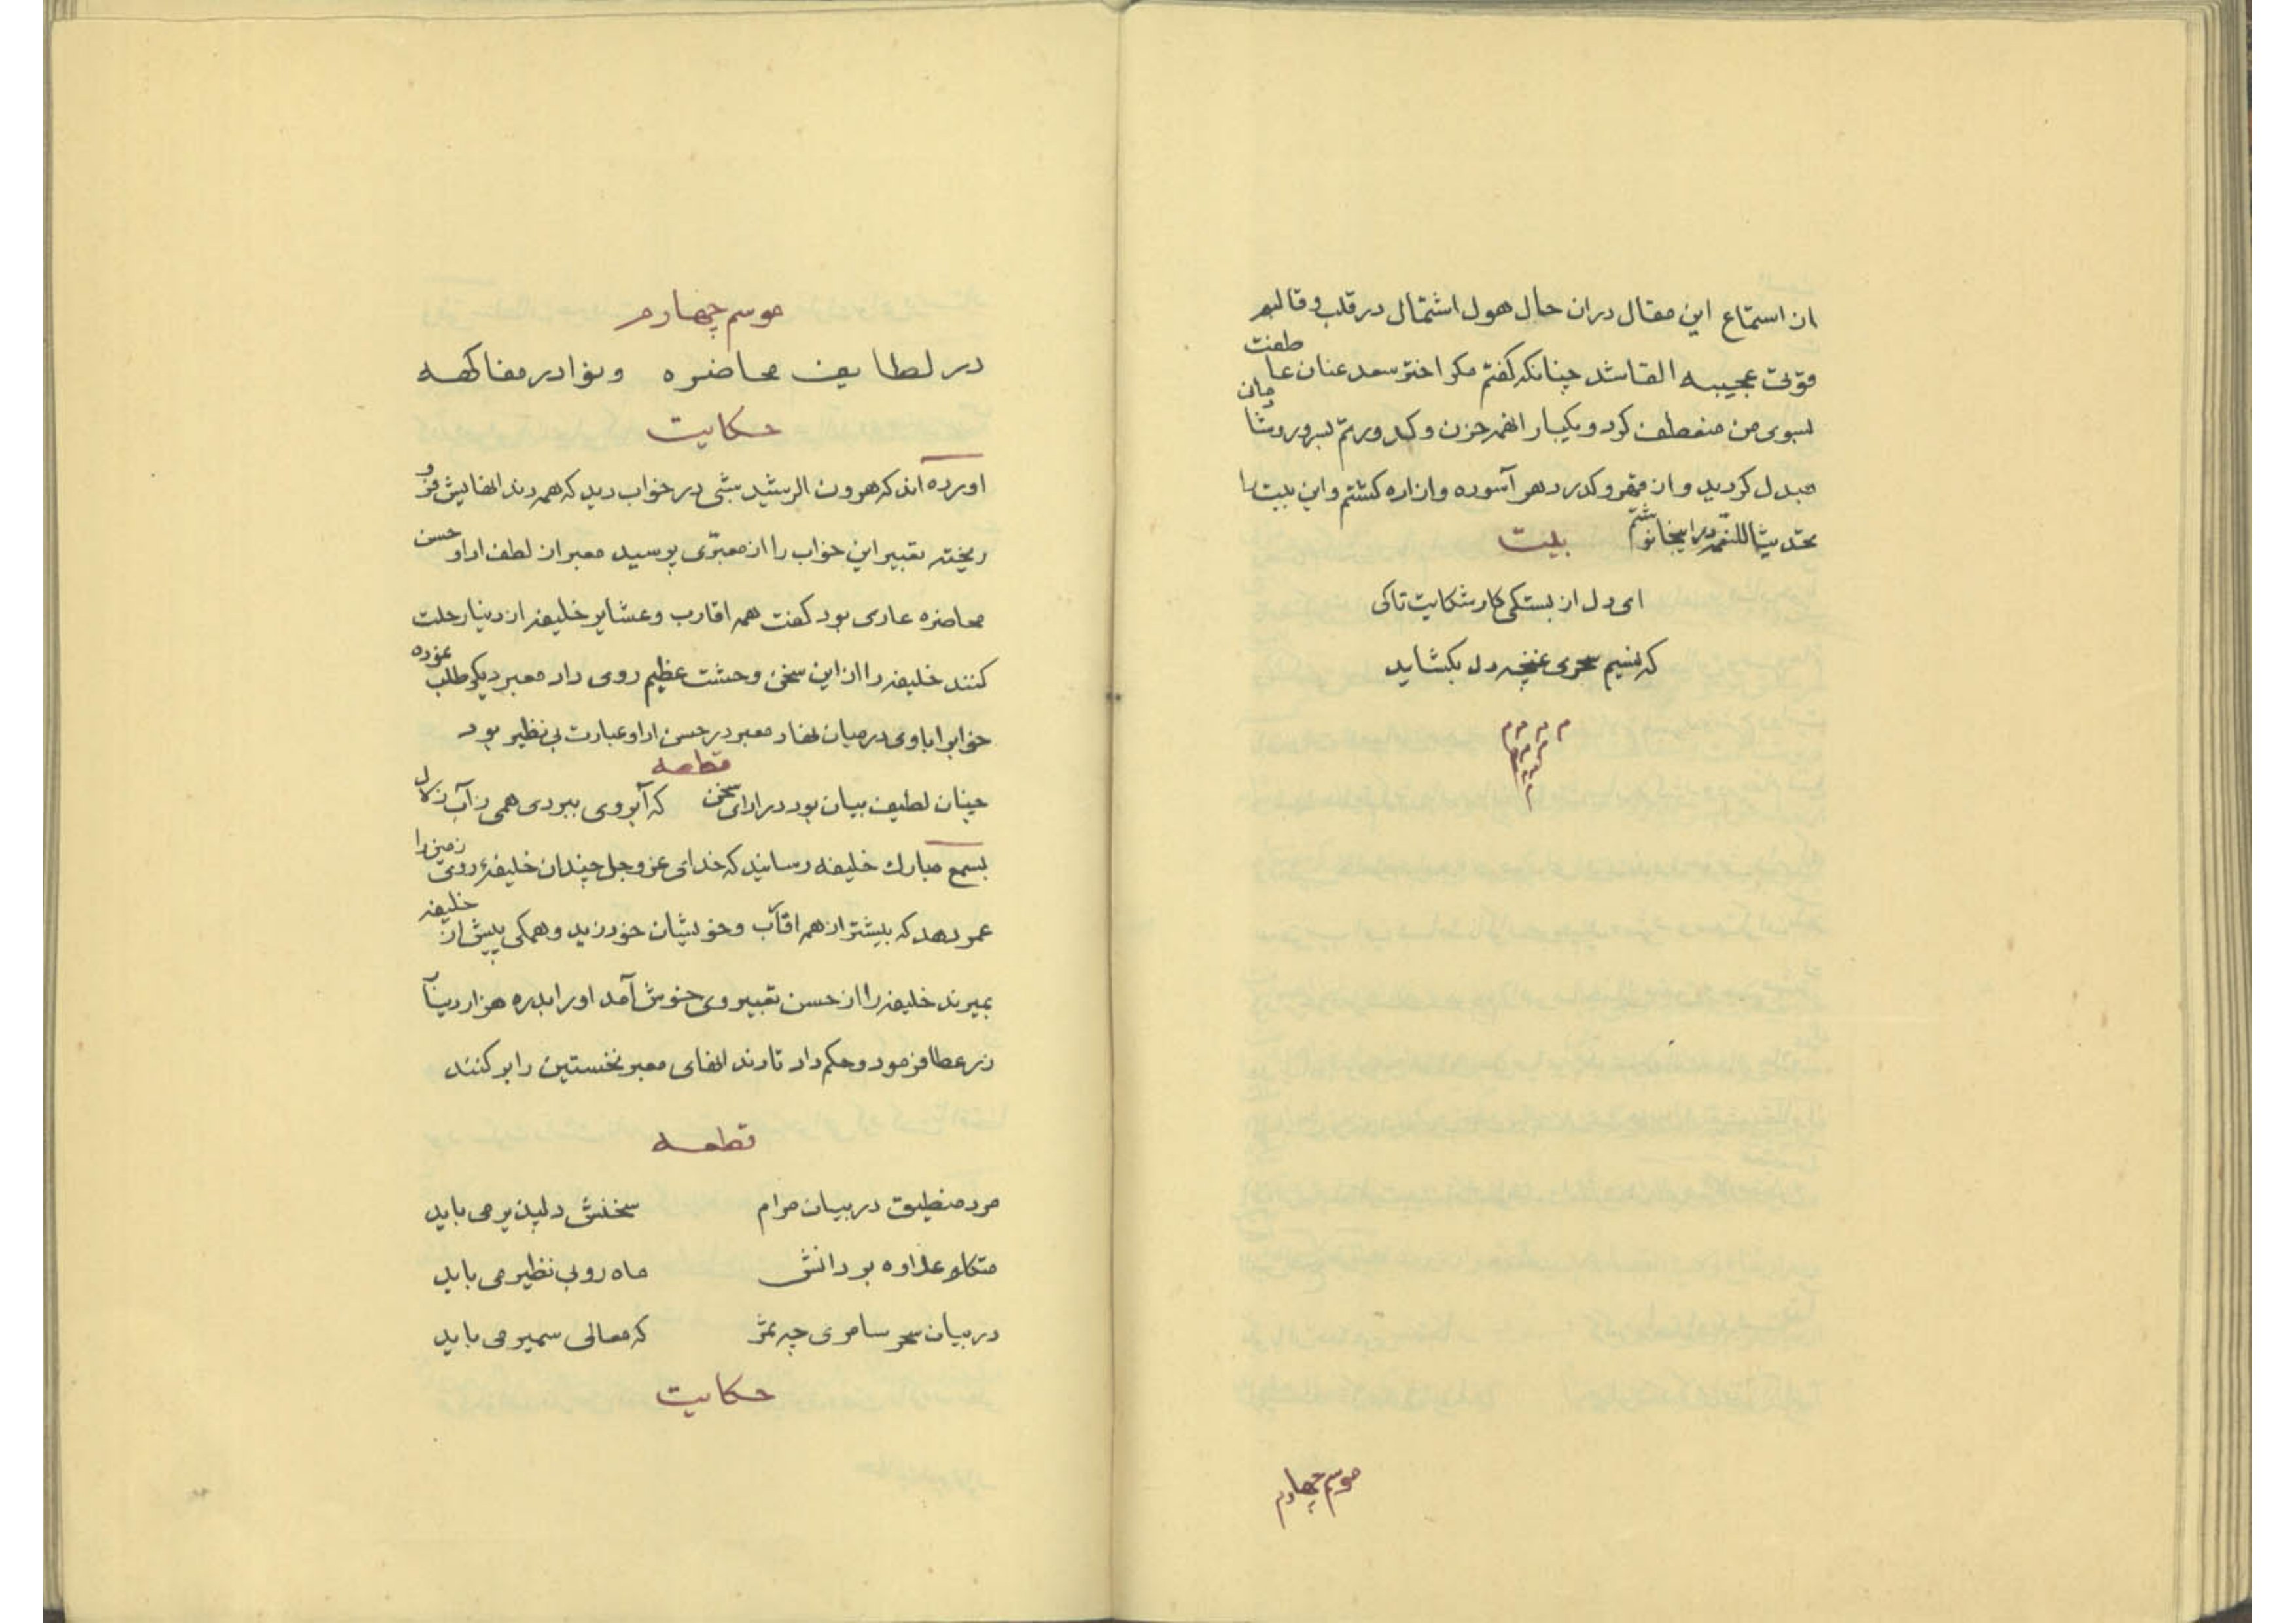 از استماع این مقال دران حال هول اشتمال در قلب و قالبم
قوّتی عجیبه القا شد چنانکه گفتم مکر اختر سعد عنان عاطفت
بسوی من منعطف کرد و بکیبار انهمه حزن و کدورتم بسرور و شادمانی
مبدل کردید و از قهر و کدر دهر آسوده و ازاده کشتم و این بیت را
تحدیثا للنعمه در اینجا نوشتم بیت
ای دل از بستکی کار شکایت تا کی
که نسیم سحری غنچه دل بکشاید
موسم چهارم
موسم چهارم
در لطایف محاضره ونوادر مفاکهه
حکایت
اورده اند که هرون الرشید شبی در خواب دید که همه دندانهایش فرو
ریخته تعبیر این خواب را از معبّری پرسید معبر از لطف ادا و حسن
محاضره عاری بود کفت همه اقارب و عشایر خلیفه از دنیا رحلت
کنند خلیفه را از این سخن وحشت عظیم روی داد معبر دیکر طلب نموده
خوابرا با وی درمیان نهاد معبر در حسن ادا و عبارت بی نظیر بود
قطعه
چنان لطیف بیان بود در ادای سخن که آبروی ببردی همی ز آب زلال
بسمع مبارك خلیفه رسانید که خدای عز وجل چندان خلیفهٔ روی زمین را
عمر دهد که بیشتر از همه اقارب و خویشان خود زید و همکی پیش از خلیفه
بمیرند خلیفه را از حسن تعبیر وی خوش آمد او را بدره هزار دینار
زر عطا فرمود و حکم داد تا دندانهای معبر نخستین را بر کنند
قطعه
مرد منطیق در بیان مرام سخنش دلپذیر می باید
متکاو عذاوه بر دانش ماه روبی نظیر می باید
در بیان سحر سامری چه ثمر که معالی سمیر می باید
حکایت